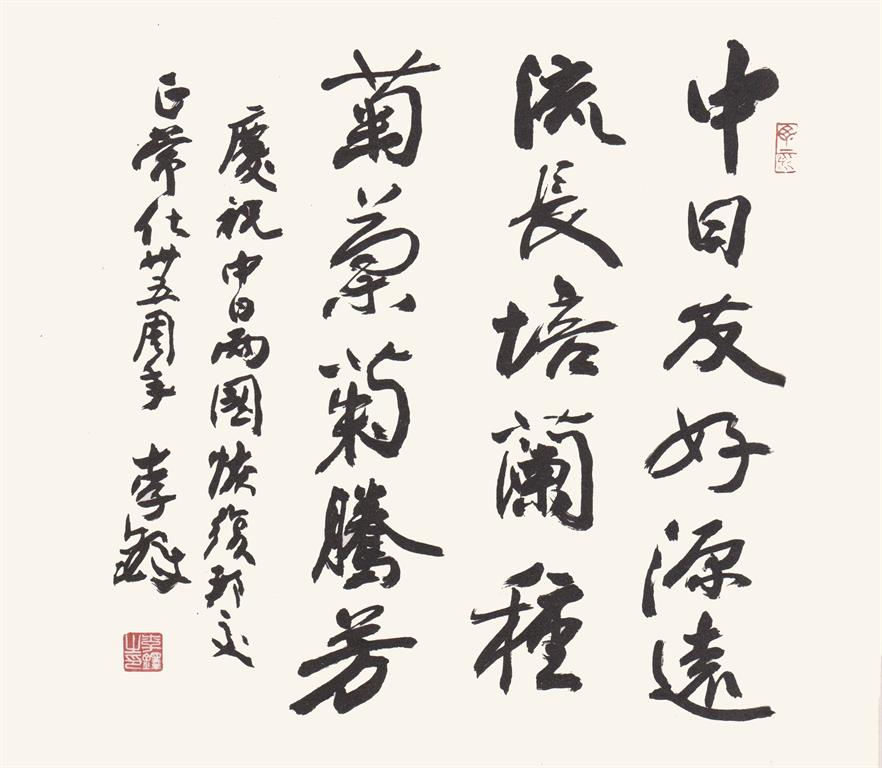 中日友好源遠
流長培蘭種
菊蘭菊騰芳
慶祝中日兩國恢復邦交
正常化卅五周年 李鐸
李鐸之印